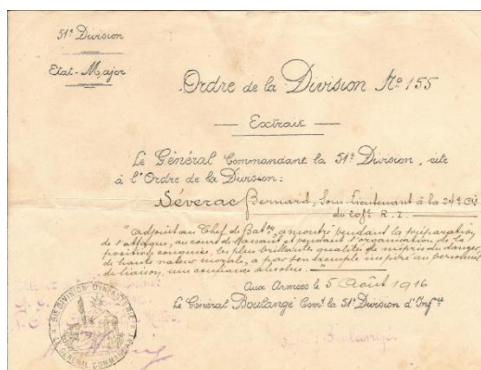 51e Division
Etat-Major
Ordre de la Division No 155
Extrait
Le Général Commandant la 51e Division, cite
à l'Ordre de la Division:
Séverac Bernard, Sous-Lieutenant à la 24e Cie
du R.I.
"adjoint au Chef de Baton, a montré pendant la préparation
de l'attaque, au cours de l'assaut et pendant l'organisation de la
position conquise, les plus brillantes qualités de mépris du danger,
de haute valeur morale, a par son exemple inspiré au personnel
de liaison, une confiance absolue."
Aux Armées le 5 Août 1916
Le Général Boulangé Comt la 51e Division d'Infie
51e DIVISION D'INFANTERIE
LE GENERAL COMMANDANT